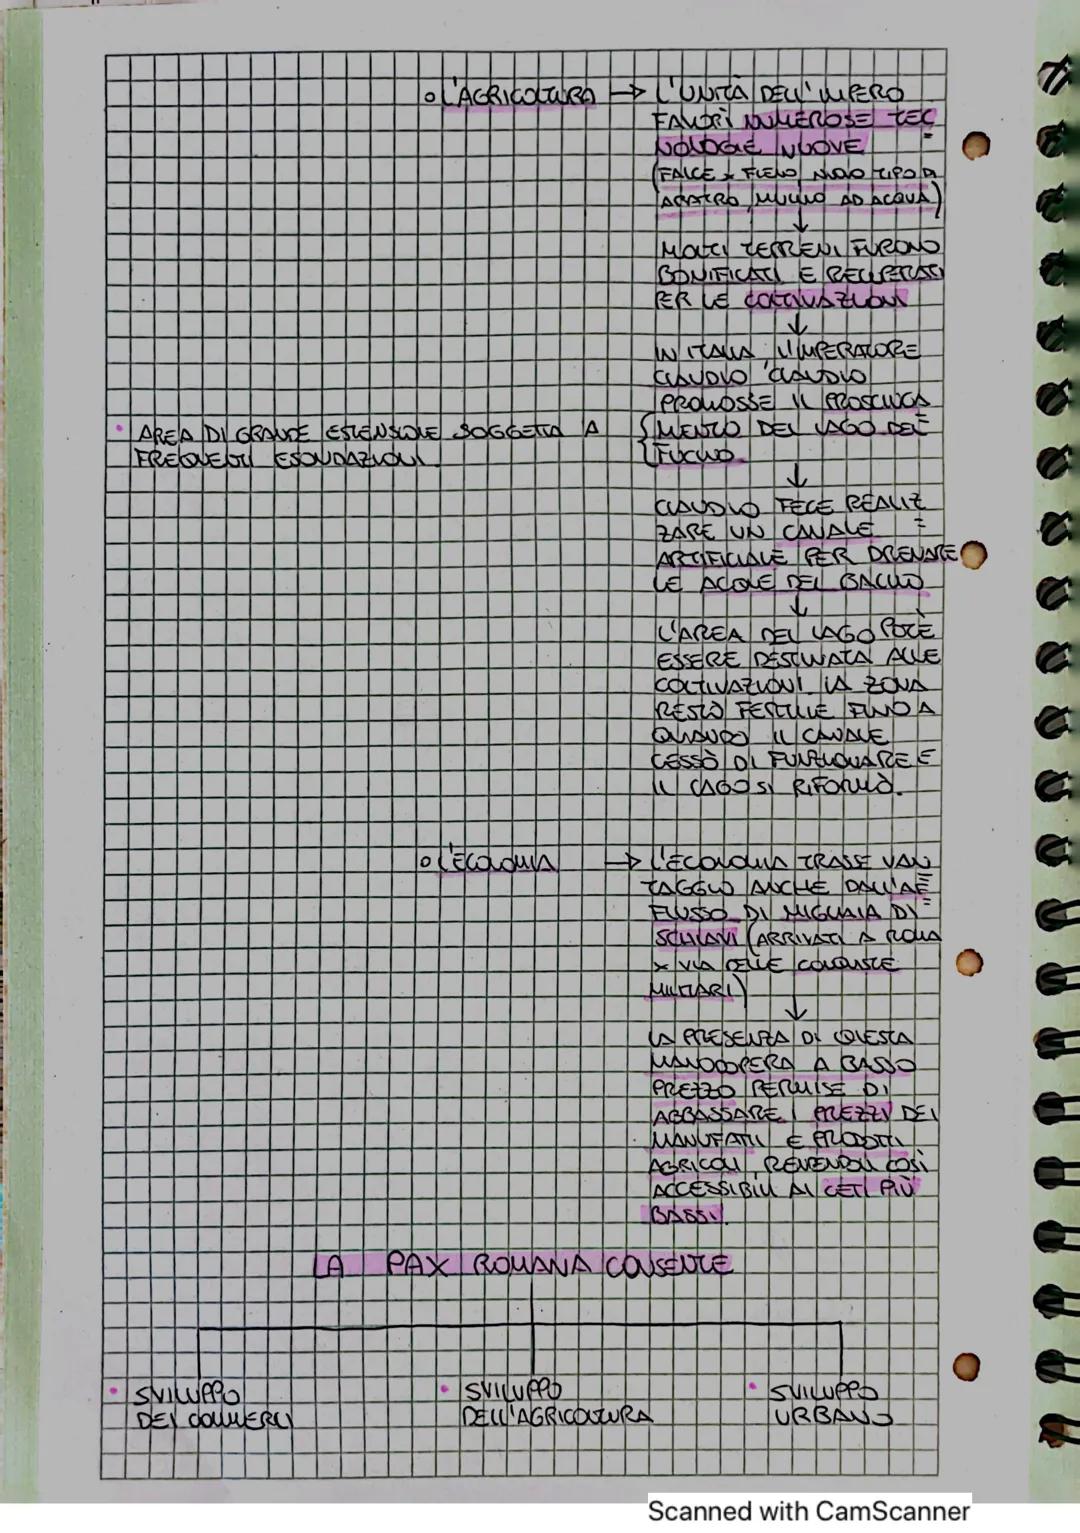 ○ L'AGRICOLTURA → L'UNITÀ DELL'IMPERO
FAVORÌ NUMEROSE TEC
NOLOGIE NUOVE
(FALCE x FIENO, NUOVO TIPO DI
ARATRO, MULINO AD ACQUA)
↓
MOLTI TERRENI FURONO
BONIFICATI E RECUPERATI
PER LE COLTIVAZIONI
↓
IN ITALIA, L'IMPERATORE
CLAUDIO CLAUDIO
PROMOSSE IL PROSCIUGA
MENTO DEL LAGO DEL
FUCINO.
• AREA DI GRANDE ESTENSIONE SOGGETTA A
FREQUENTI ESONDAZIONI.
↓
CLAUDIO FECE REALIZ
ZARE UN CANALE
ARTIFICIALE PER DRENARE
LE ACQUE DEL BACINO
↓
L'AREA DEL LAGO POTÈ
ESSERE DESTINATA ALLE
COLTIVAZIONI. LA ZONA
RESTÒ FERTILE FINO A
QUANDO IL CANALE
CESSÒ DI FUNZIONARE E
IL LAGO SI RIFORMÒ.
○ L'ECONOMIA → L'ECONOMIA TRASSE VAN
TAGGIO ANCHE DALL'AF
FLUSSO DI MIGLIAIA DI
SCHIAVI (ARRIVATI A ROMA
x VIA DELLE CONQUISTE
MILITARI)
↓
LA PRESENZA DI QUESTA
MANODOPERA A BASSO
PREZZO PERMISE DI
ABBASSARE I PREZZI DEI
MANUFATTI E PRODOTTI
AGRICOLI, RENDENDOLI COSÌ
ACCESSIBILI AI CETI PIÙ
BASSI.
LA PAX ROMANA CONSENTE
• SVILUPPO
DEI COMMERCI
• SVILUPPO
DELL'AGRICOLTURA
• SVILUPPO
URBANO
Scanned with CamScanner